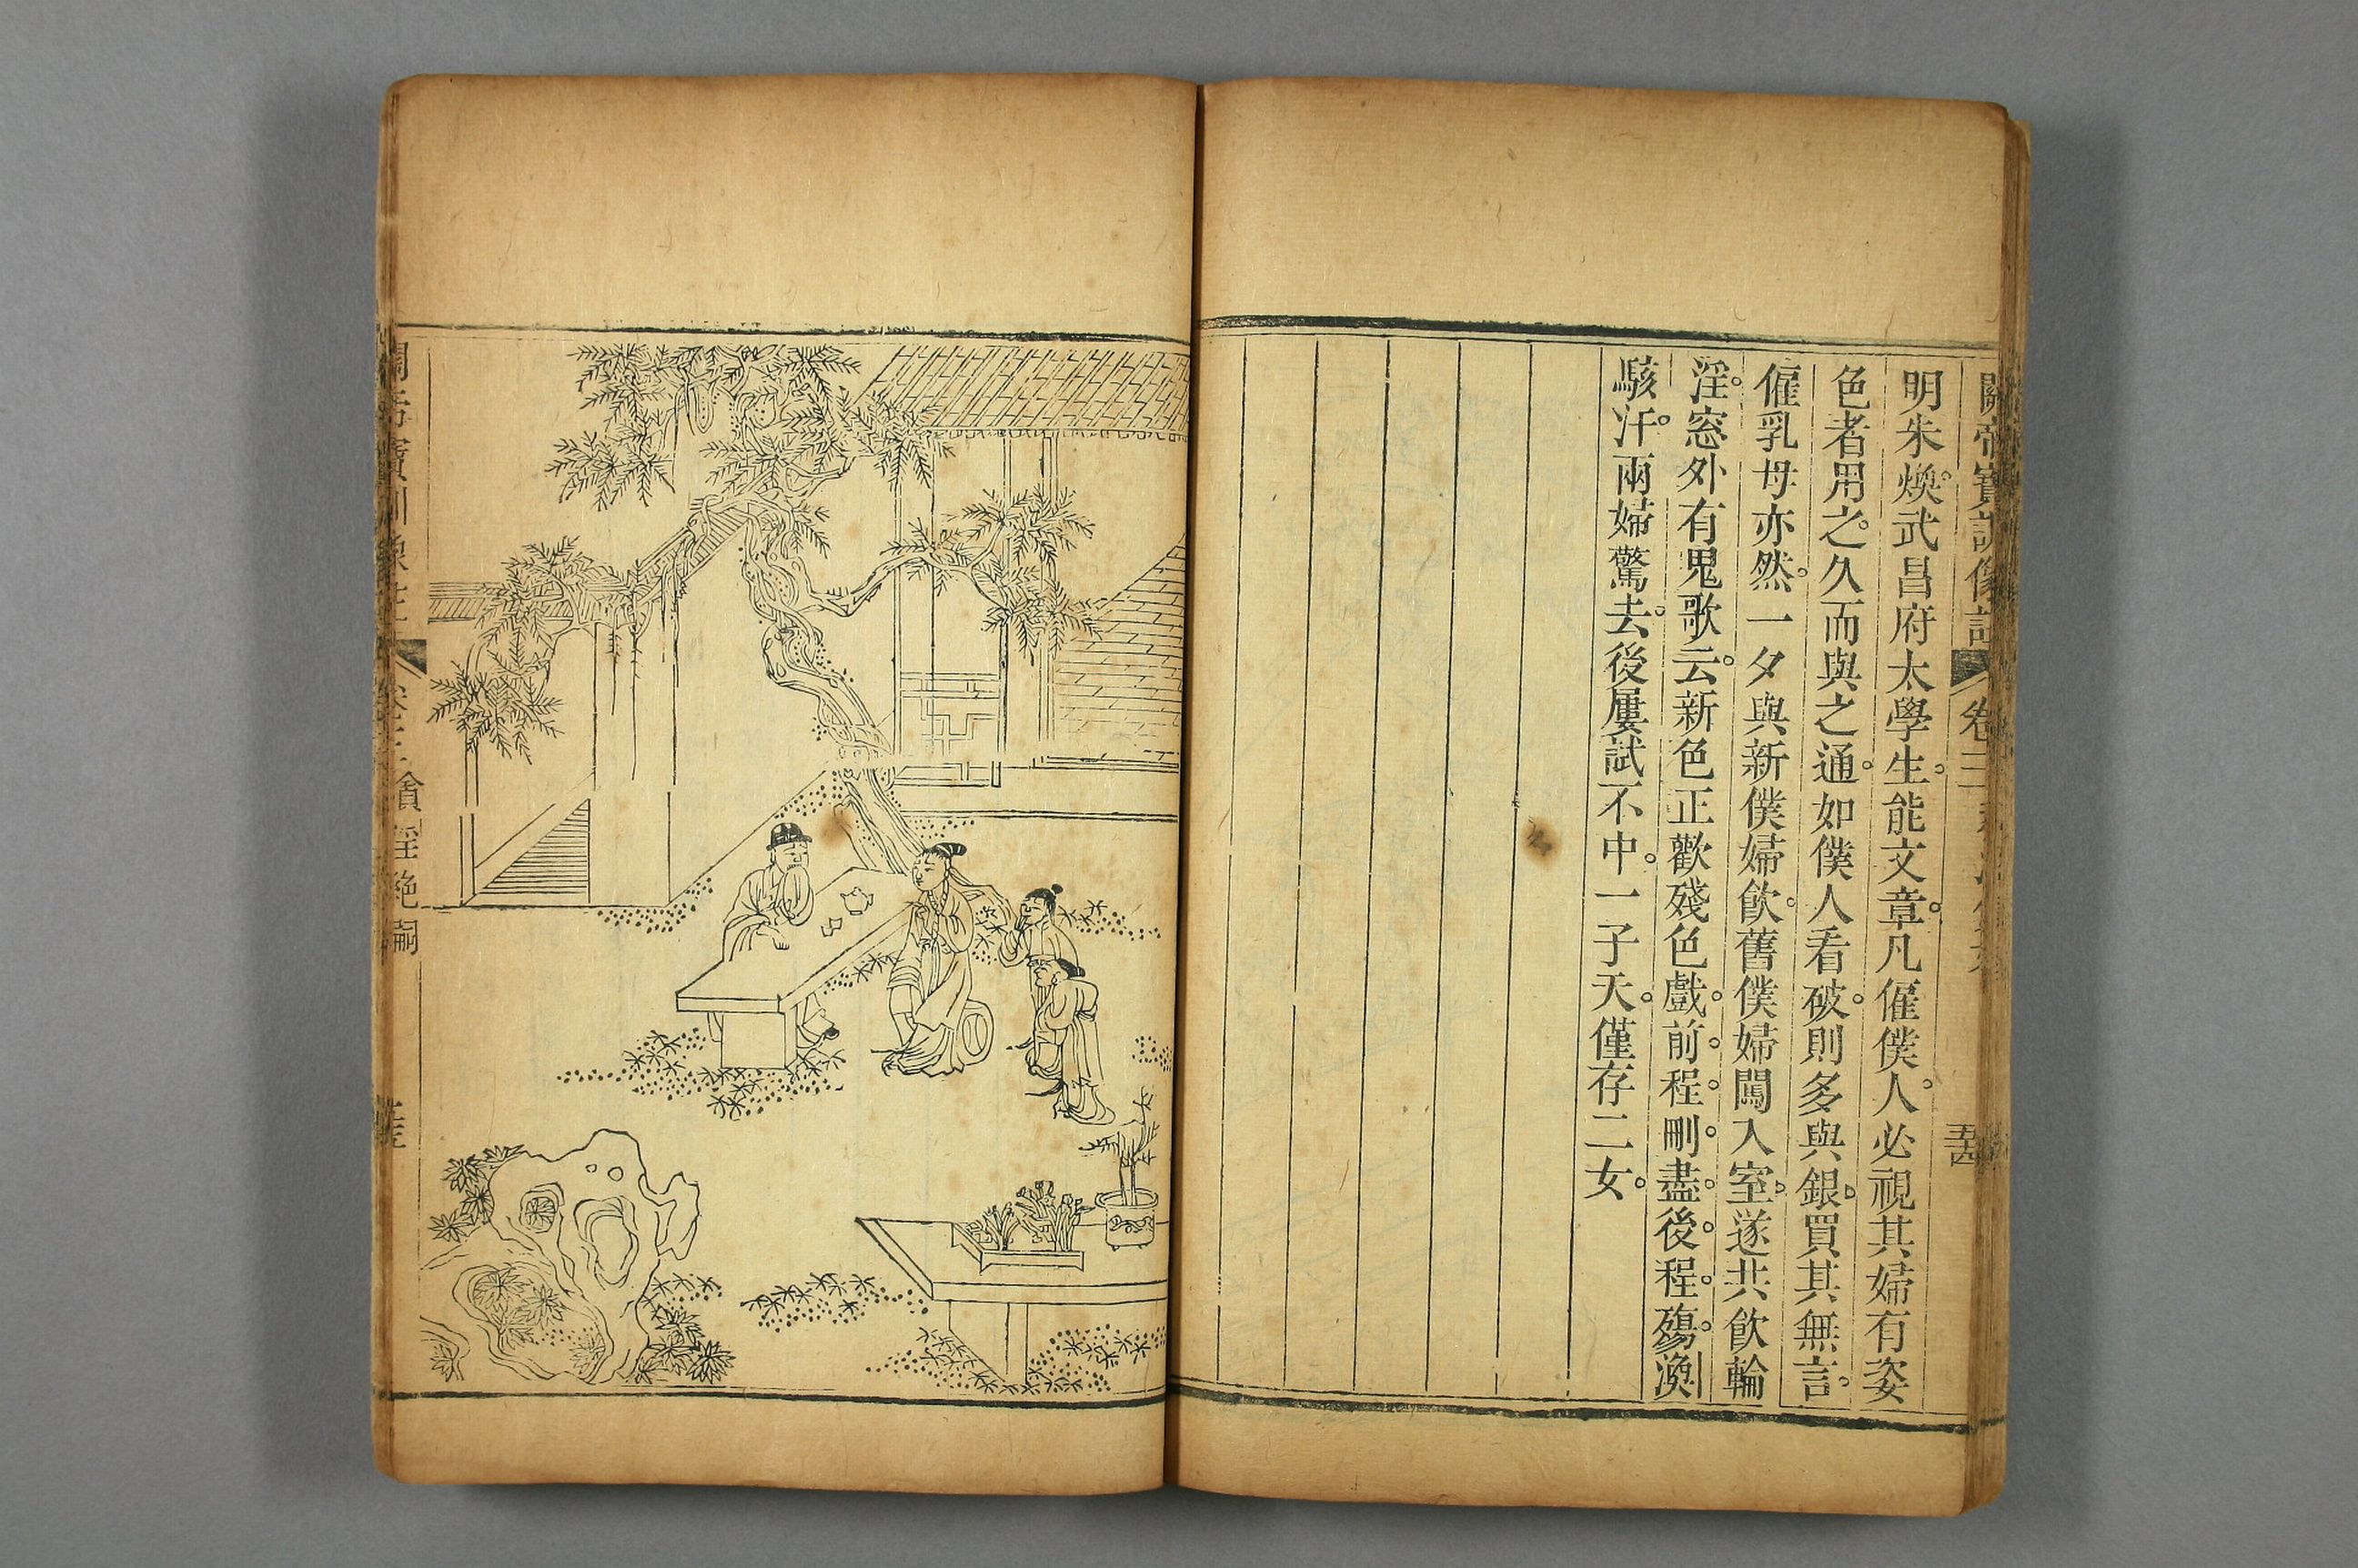 關帝寶訓像註 卷三 五十四
明朱煥。武昌府太學生。能文章。凡僱僕人。必視其婦有姿
色者用之。久而與之通。如僕人看破。則多與銀。買其無言。
僱乳母亦然。一夕與新僕婦飲。舊僕婦闖入室。遂共飲輪
淫。窓外有鬼歌云。新色正歡殘色戲。前。程。刪。盡。後。程。殤。渙
駭汗。兩婦驚去。後屢試不中。一子夭。僅存二女。
寶訓像註 卷三 淫絶嗣